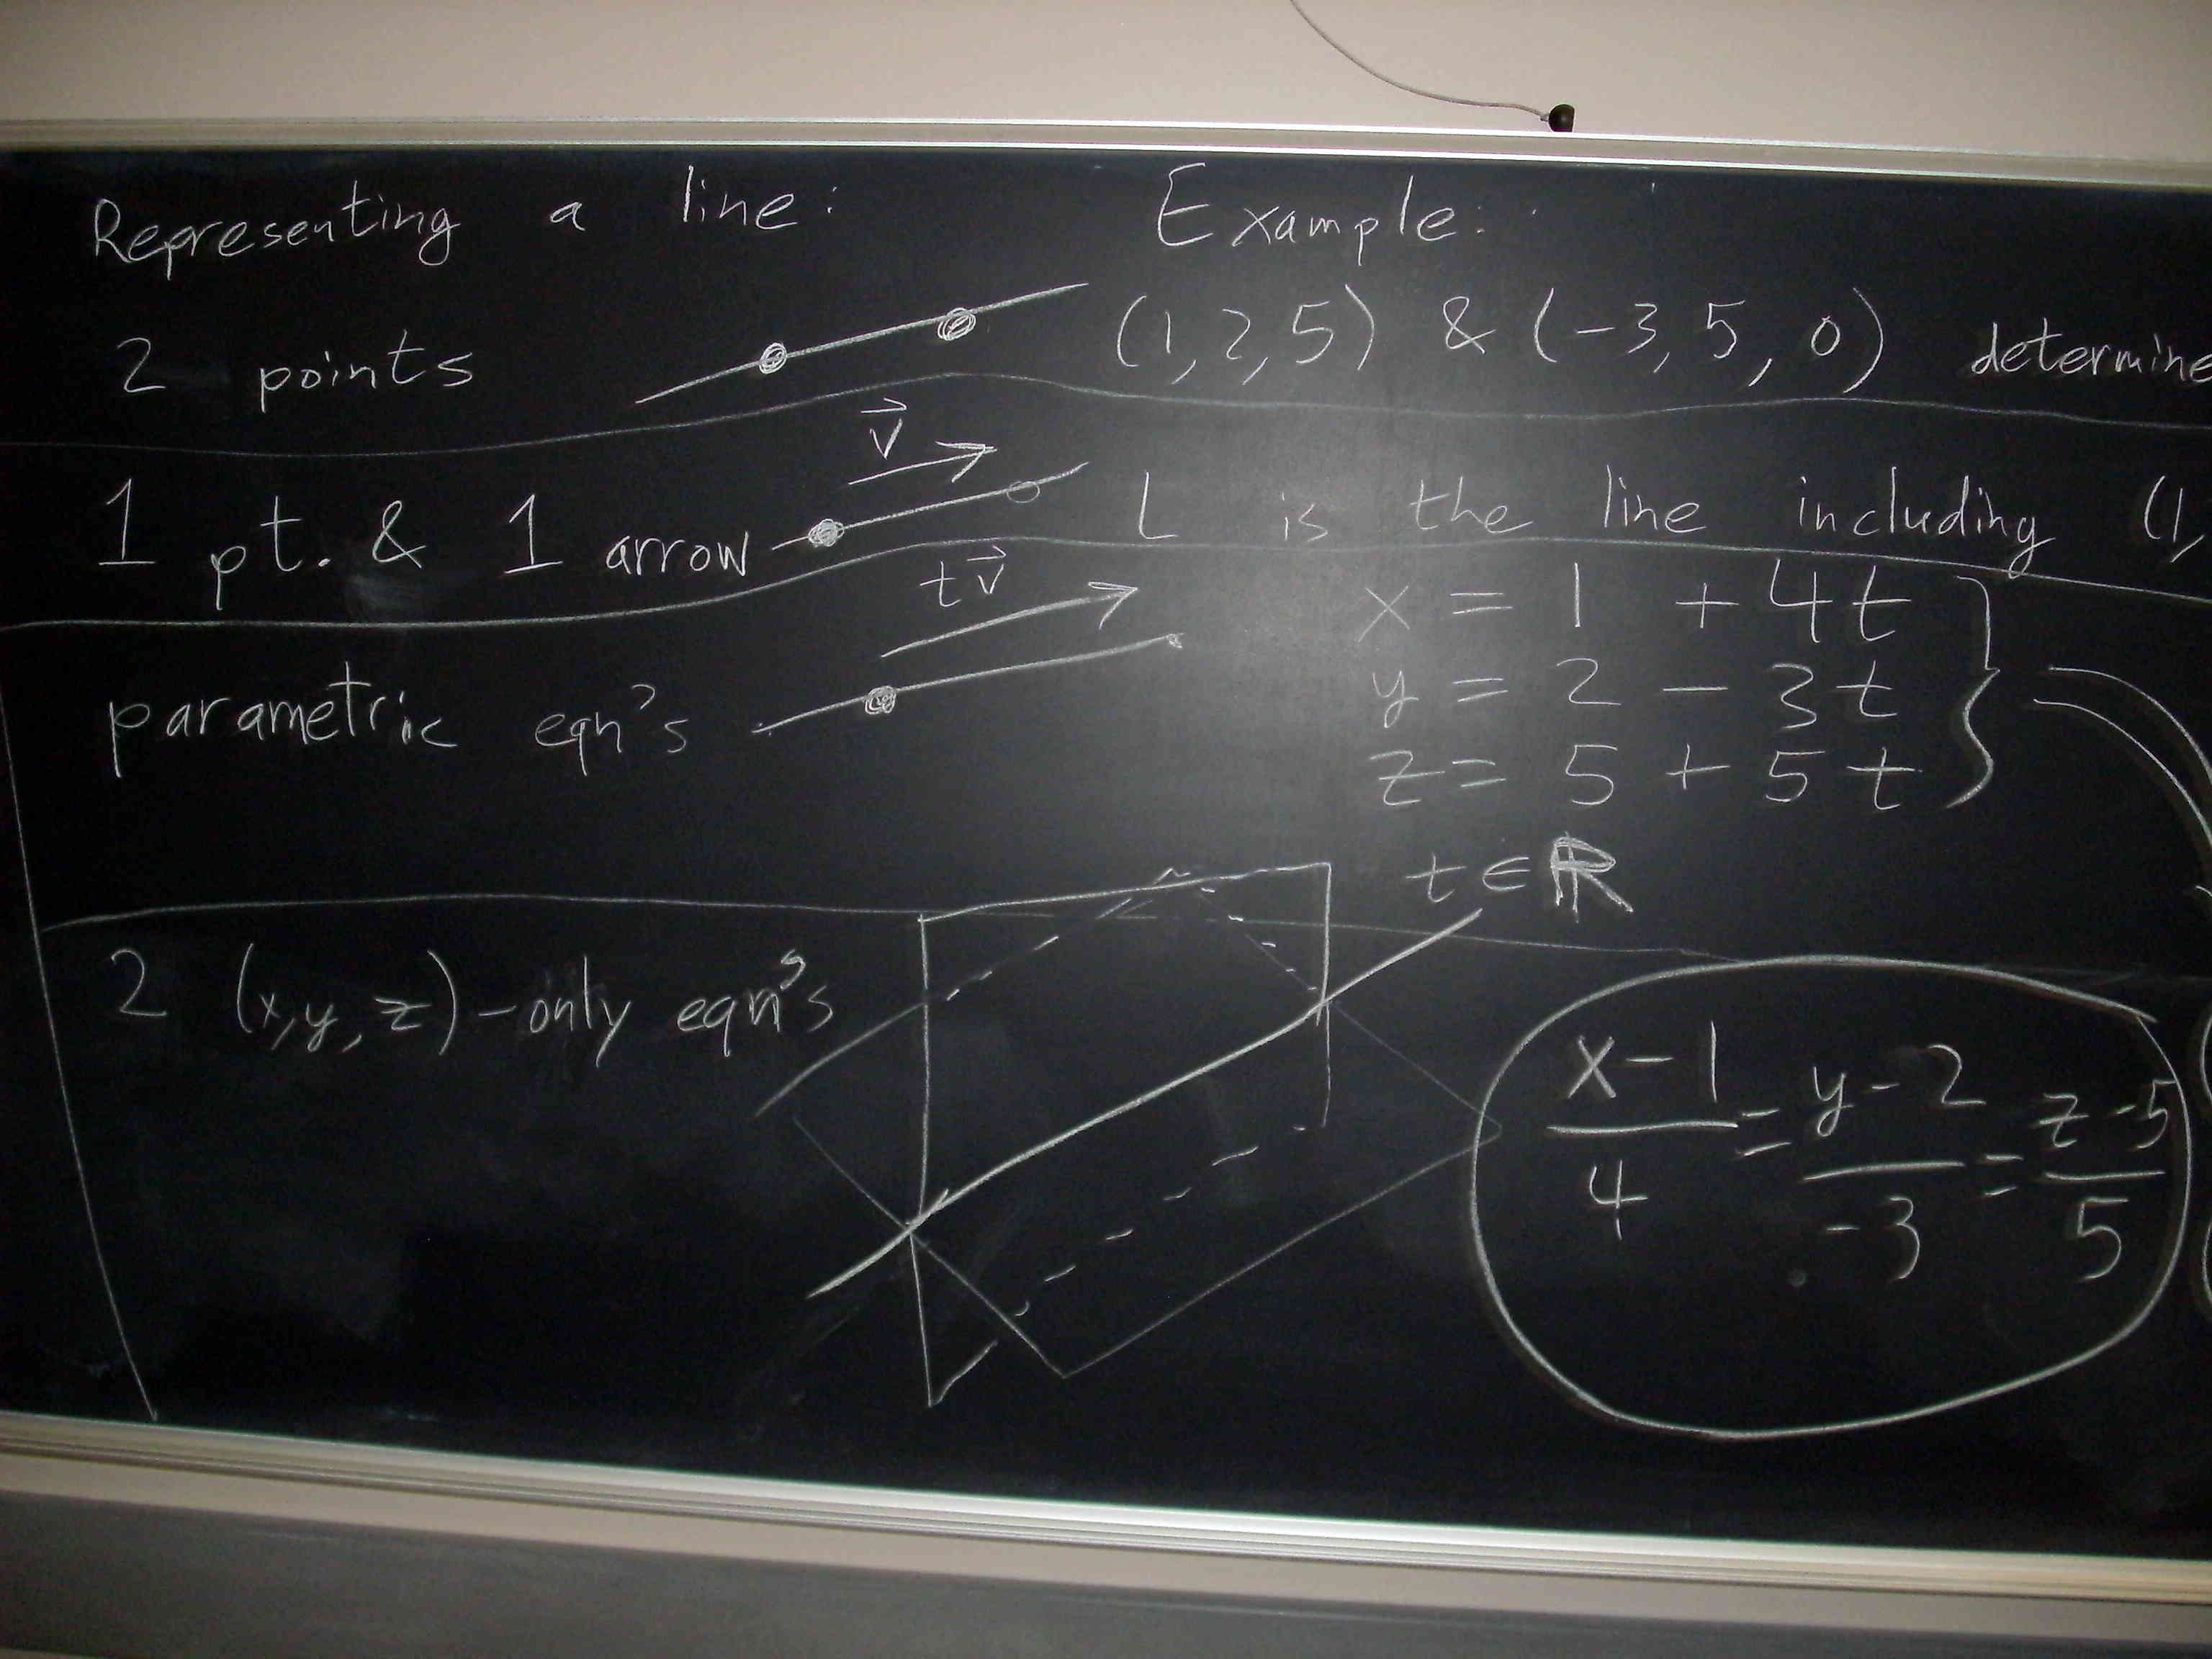 Representing a line:
Example:
2 points
(1,2,5) & (-3,5,0) determine
1 pt. & 1 arrow
v⃗
L is the line including (1,
parametric eqn's
tv⃗
x = 1 + 4t
y = 2 - 3t
z = 5 + 5t
t ∈ ℝ
2 (x,y,z)-only eqn's
(x-1)/4 = (y-2)/-3 = (z-5)/5